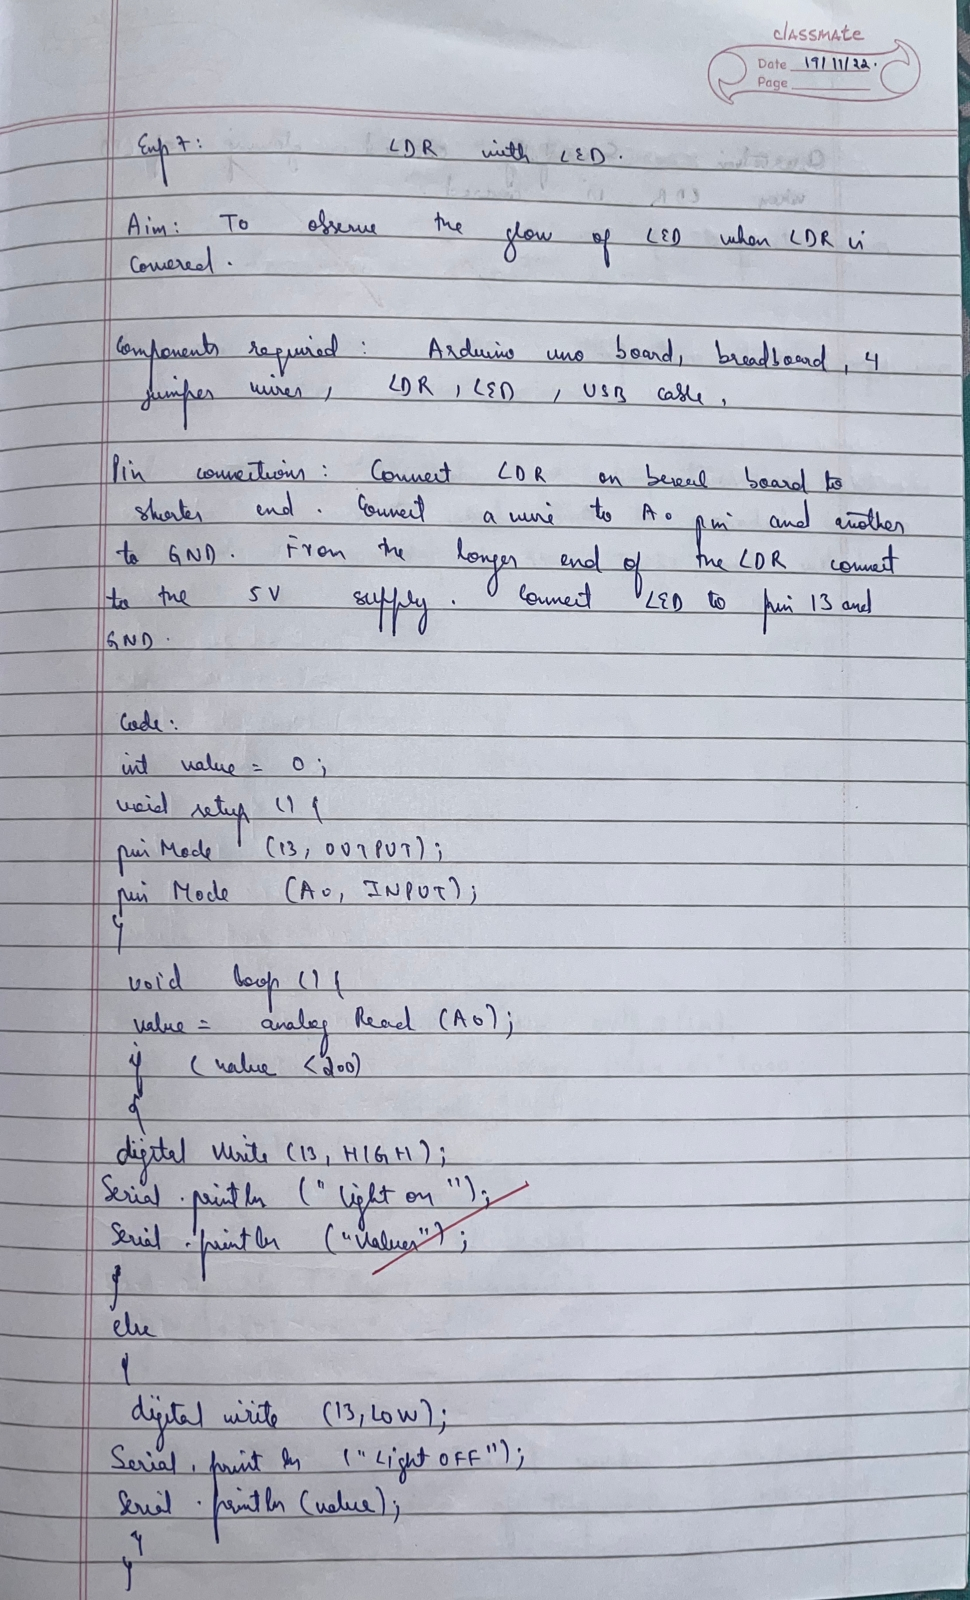 classmate
Date 19/11/22.
Page
Exp 7: LDR with LED.
Aim: To observe the glow of LED when LDR is
covered.
Components required: Arduino uno board, breadboard, 4
jumper wires, LDR, LED, USB cable,
Pin connections: Connect LDR on bread board to
shorter end. Connect a wire to A0 pin and another
to GND. From the longer end of the LDR connect
to the 5V supply. Connect LED to pin 13 and
GND.
Code:
int value = 0;
void setup () {
pin Mode (13, OUTPUT);
pin Mode (A0, INPUT);
}
void loop () {
value = analog Read (A0);
if (value <200)
{
digital Write (13, HIGH);
Serial.println ("light on");
Serial.println ("values");
}
else
{
digital write (13, LOW);
Serial.print ln ("Light OFF");
Serial.println (value);
}
}